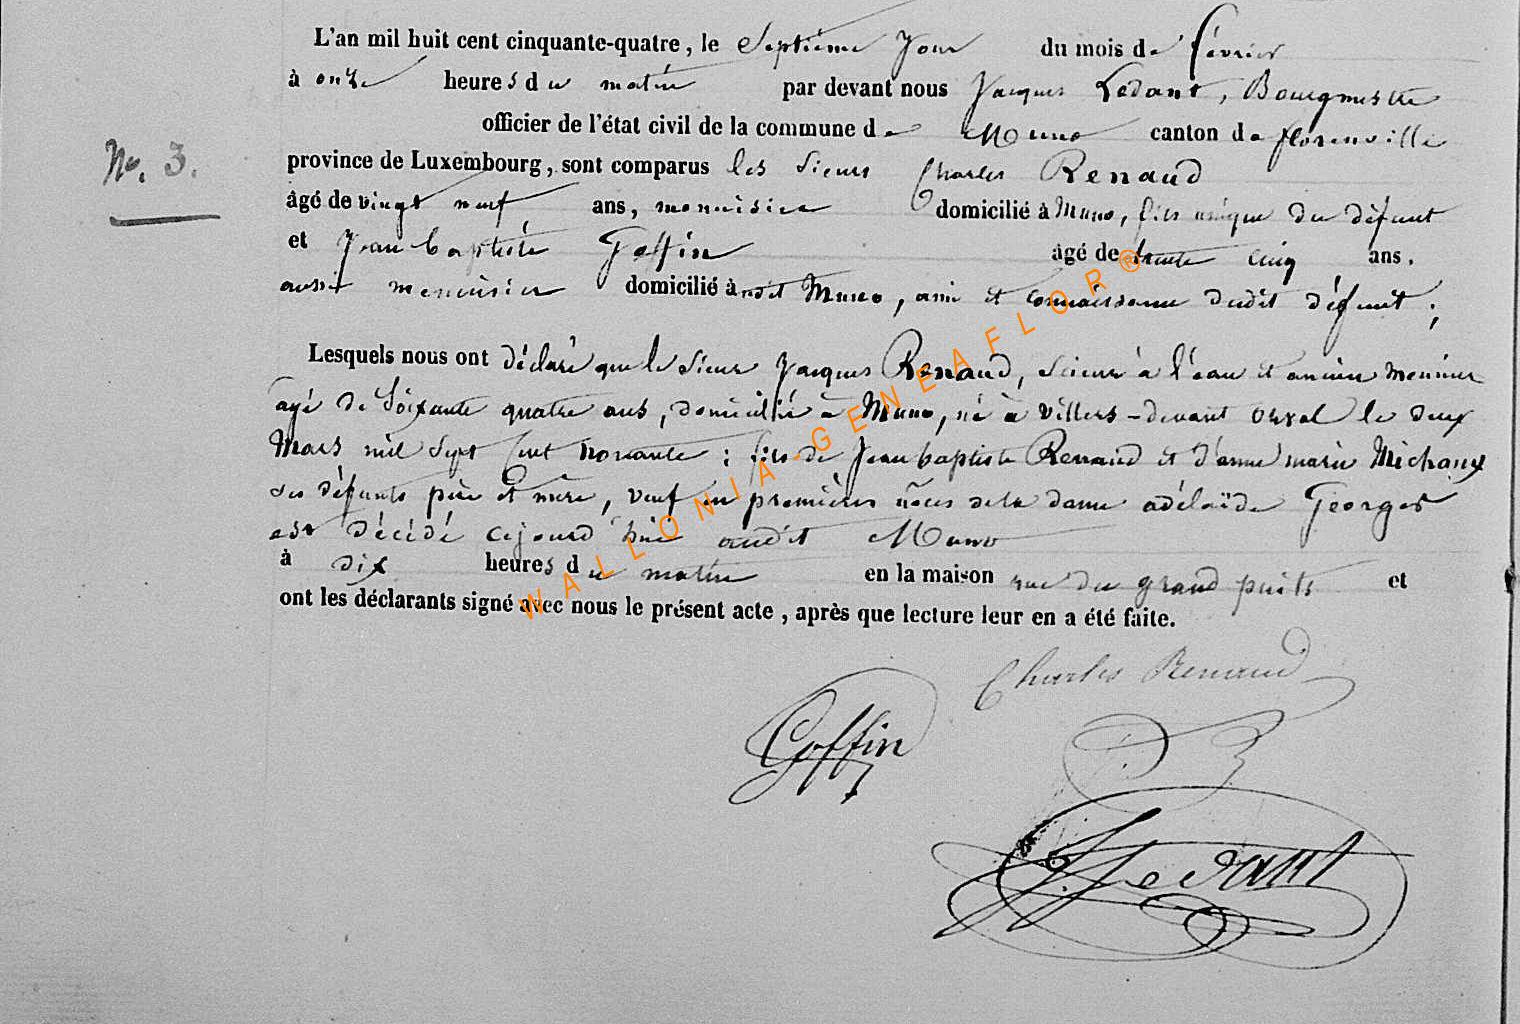 L'an mil huit cent cinquante-quatre, le Septième Jour du mois de février
à onze heures du matin par devant nous Jacques Ledant, Bourgmestre
officier de l'état civil de la commune de Muno canton de florenville
No. 3.
province de Luxembourg, sont comparus les sieurs Charles Renaud
âgé de vingt neuf ans, menuisier domicilié à Muno, fils unique du défunt
et Jean baptiste Goffin âgé de trente cinq ans.
aussi menuisier domicilié à Muno, ami et connaissance dudit défunt ;
Lesquels nous ont déclaré que le sieur Jacques Renaud, scieur à l'eau et ancien meunier
agé de Soixante quatre ans, domicilié à Muno, né à Villers-devant orval le deux
Mars mil Sept Cent nonante ; fils de Jean baptiste Renaud et d'anne marie Michaux
ses défunts père et mère, veuf en premières nôces de la dame adélaïde Georges
est décédé cejourd'hui audit Muno
à dix heures du matin en la maison rue du grand puits et
ont les déclarants signé avec nous le présent acte, après que lecture leur en a été faite.
Charles Renaud
Goffin
J Ledant
WALLONIA-GENEAFLOR®